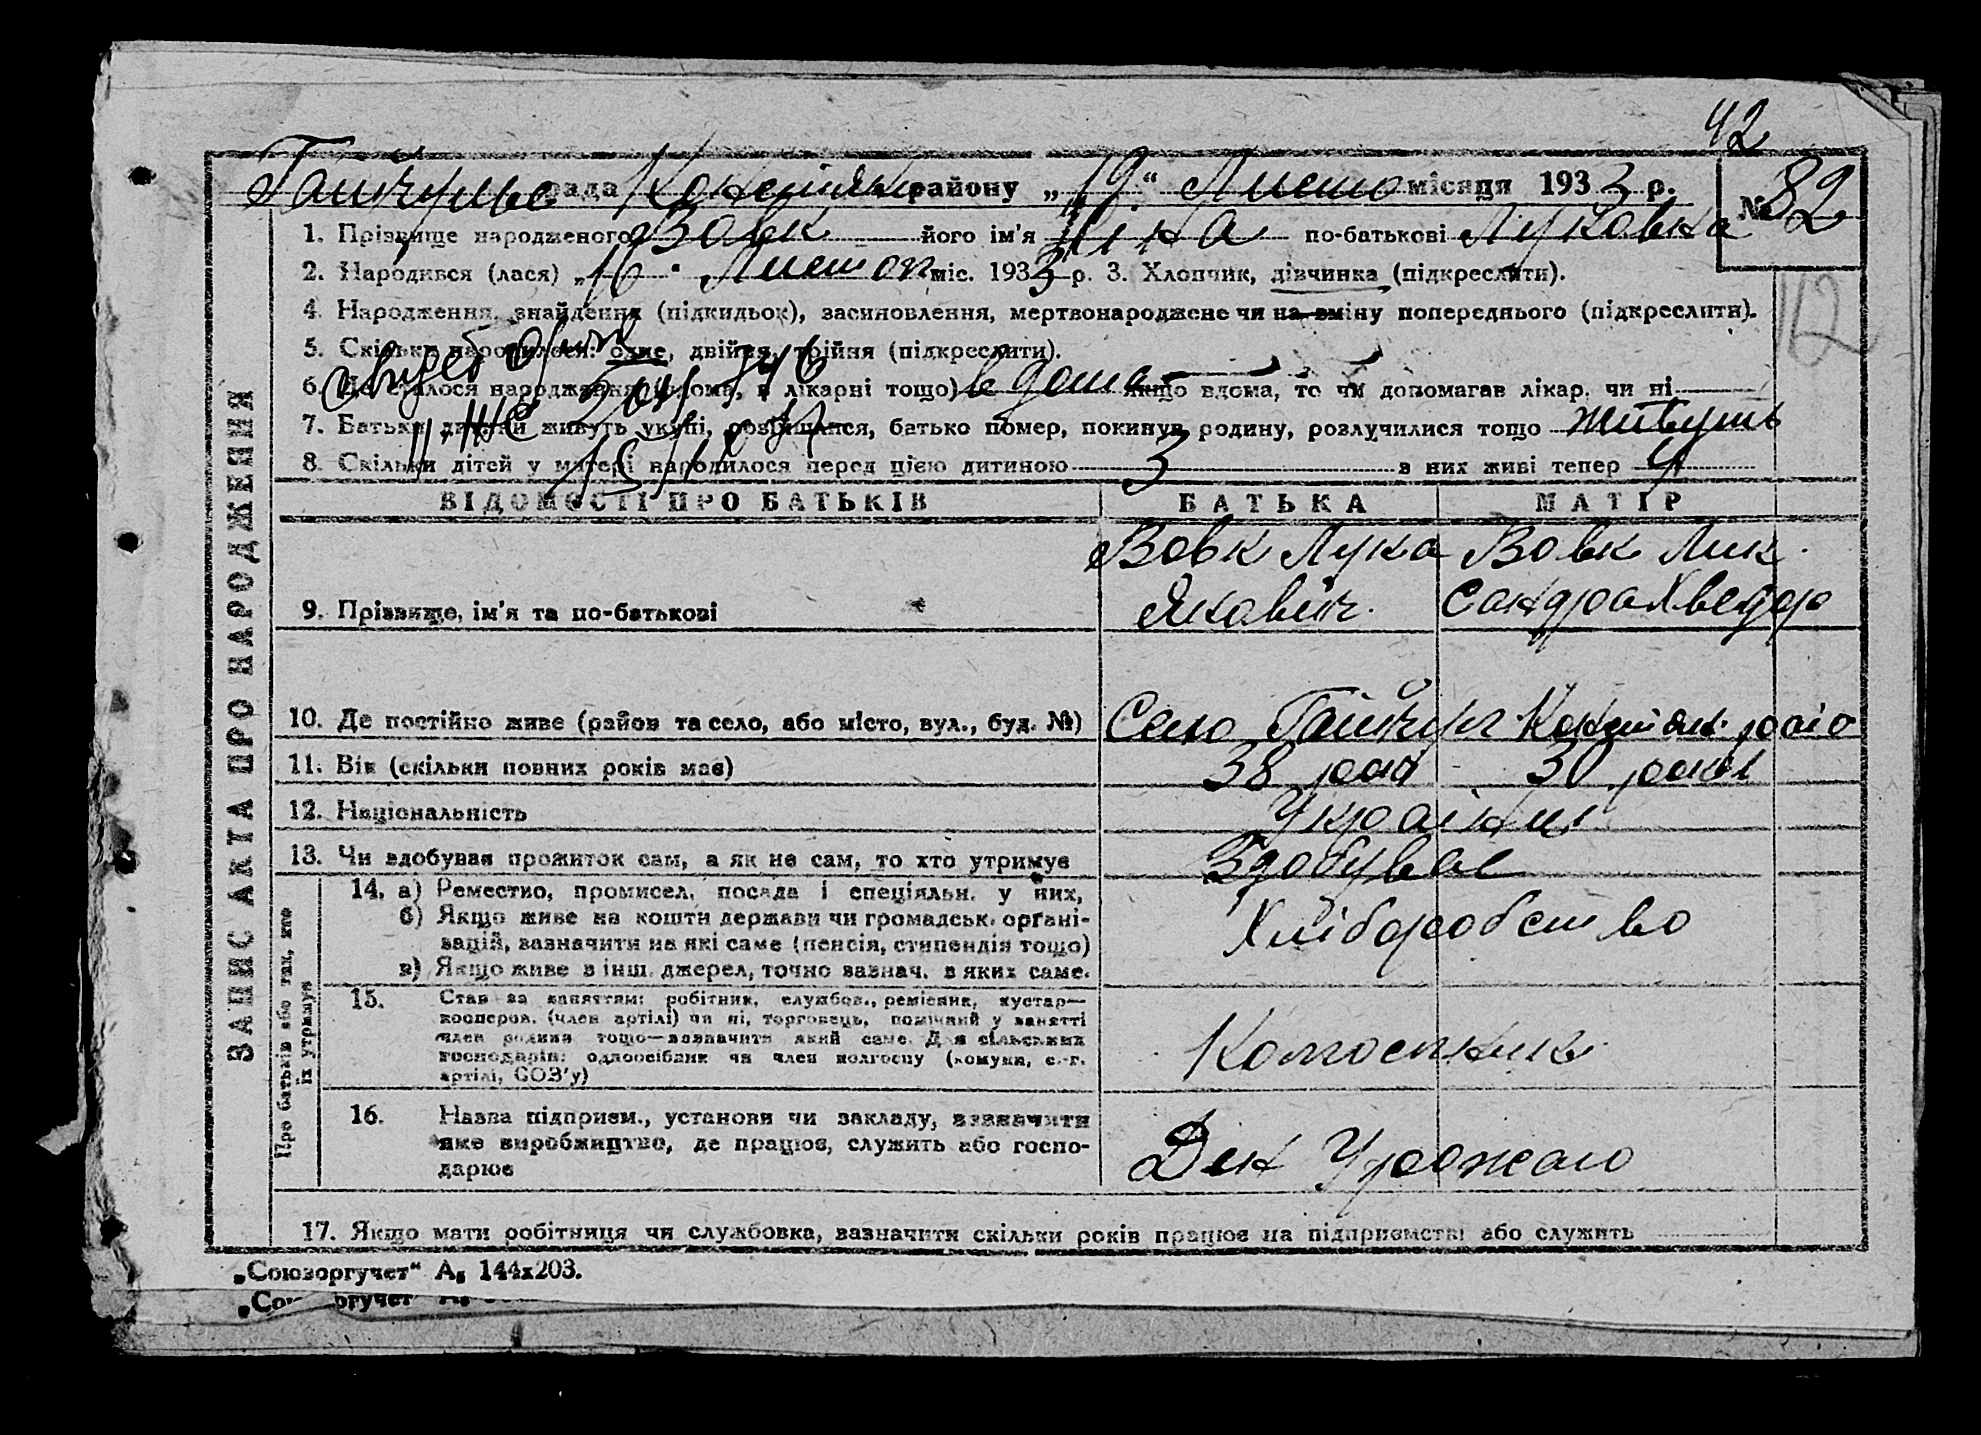 42
Гайчульс рада Кокстян району „19“ Листо місяця 1933 р. № 82
1. Прізвище народженого Вовк його ім'я Ніна по-батькові Луковна
2. Народився (лася) „16“ Листоп міс. 1933 р. 3. Хлопчик, дівчинка (підкреслити).
4. Народження, знайдення (підкидьок), засиновлення, мертвонароджене чи на вміну попереднього (підкреслити).
12
5. Скільки народилося: одне, двійня, трійня (підкреслити).
6. Де сталося народження (вдома, в лікарні тощо) в дома якщо вдома, то чи допомагав лікар, чи ні
7. Батьки дитини живуть укупі, розійшлися, батько помер, покинув родину, розлучилися тощо живуть
8. Скільки дітей у матері народилося перед цією дитиною 3 з них живі тепер 4
ВІДОМОСТІ ПРО БАТЬКІВ БАТЬКА МАТІР
ЗАПИС АКТА ПРО НАРОДЖЕННЯ
9. Прізвище, ім'я та по-батькові
Вовк Лука
Якович.
Вовк Лик
сандра Хведор
10. Де постійно живе (район та село, або місто, вул., буд. №) Село Гайчул
11. Вік (скільки повних років має) 38 рокі 30 рокі
12. Національність Українці
13. Чи здобував прожиток сам, а як не сам, то хто утримує Здобуває
Про батьків або тих, хто їх утримує
14. а) Ремество, промисел, посада і спеціяльн. у них,
б) Якщо живе на кошти держави чи громадськ. орґані-
зацій, зазначити на які саме (пенсія, стипендія тощо)
в) Якщо живе з інш. джерел, точно зазнач. з яких саме.
Хліборобство
15. Стан за заняттям: робітник, службов., ремісник, кустар—
кооперов. (член артілі) чи ні, торговець, помічний у занятті
член родини тощо—зазначити який саме. Для сільських
господарів: одноосібник чи член колгоспу (комуни, с.-г.
артілі, СОЗ'у)
Колгоспник
16. Назва підприєм., установи чи закладу, зазначити
яке виробництво, де працює, служить або госпо-
дарює
Ден Урожаю
17. Якщо мати робітниця чи службовка, зазначити скільки років працює на підприємстві або служить
„Союзоргучет“ А₅ 144х203.